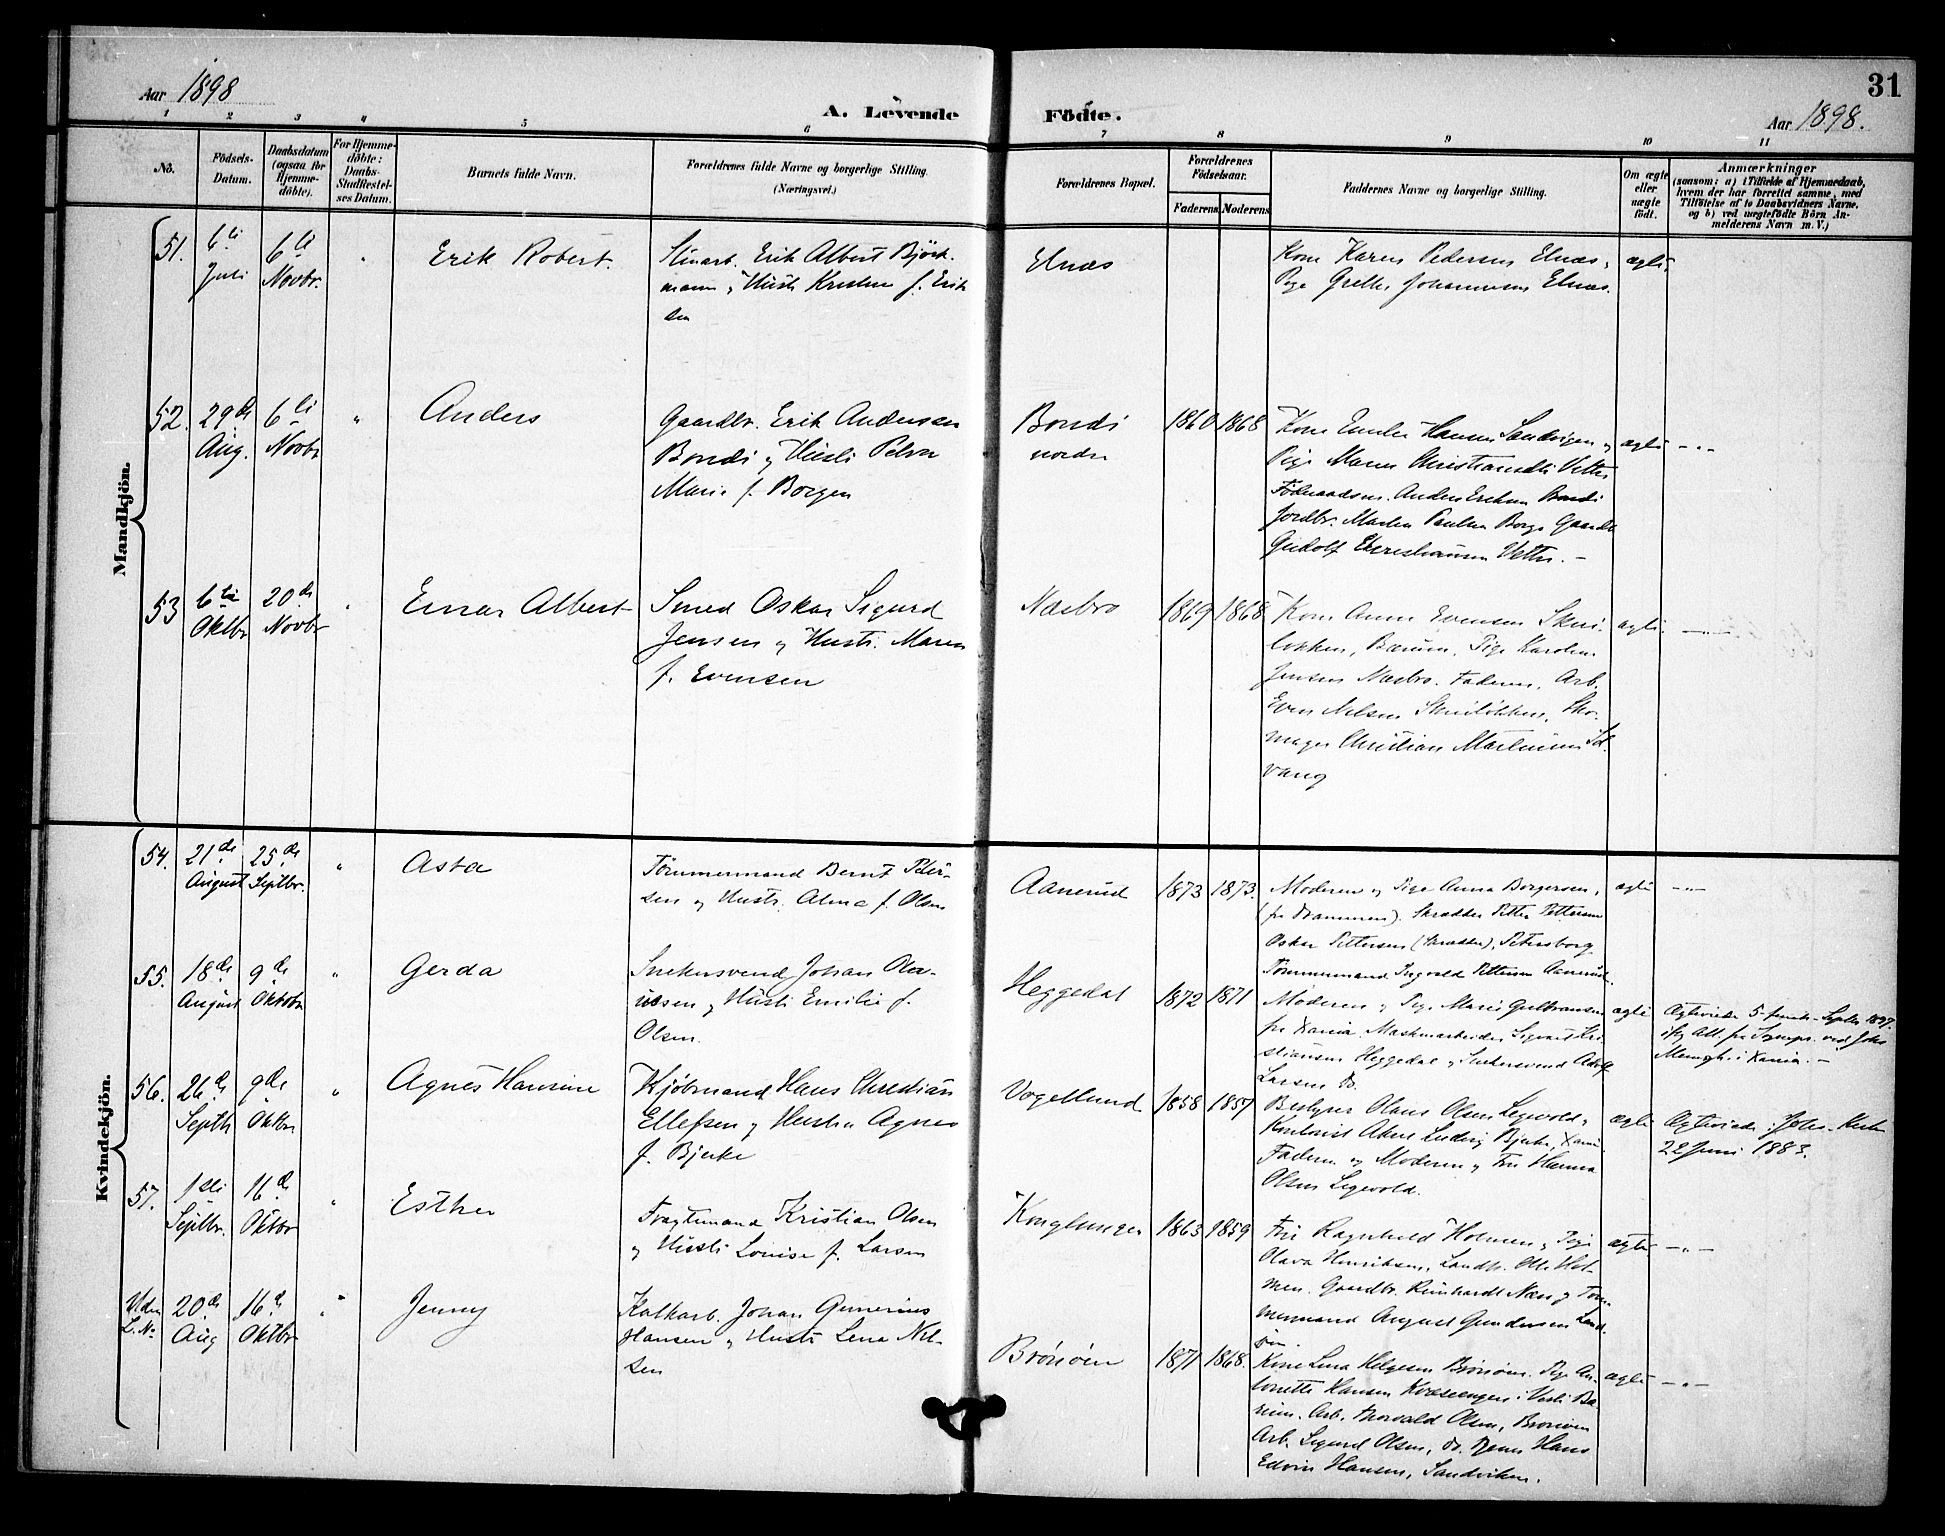 31
Aar 1898
A. Levende
Födte.
Aar 1898.
1 2 3 4 5 6 7 8 9 10 11
No.
Födsels-
Datum.
Daabsdatum
(ogsaa for
Hjemme-
döbte).
For Hjemme-
döbte:
Daabs-
Stadfæstel-
ses Datum.
Barnets fulde Navn.
Forældrenes fulde Navne og borgerlige Stilling.
(Næringsvei.)
Forældrenes Bopæl.
Forældrenes
Födselsaar.
Faderens
Moderens
Faddernes Navne og borgerlige Stilling.
Om ægte
eller
uægte
født.
Anmærkninger
(saasom: a) i Tilfælde af Hjemmedaab,
hvem der har forrettet samme, med
Tilföielse af to Daabsvidners Navne,
og b) ved uægtefödte Börn An-
melderens Navn m. V.)
Mandkjön.
51.
6te
Juli
6te
Novbr.
Erik Robert.
Erik Albert Björk-
mann og Hustr Kristine f. Erik
sen
Elnæs
Kone Karen Pedersen Elnæs,
Pige Grethe Johannesen Elnæs.
ægte
52.
29de
Aug.
6te
Novbr
Anders
Gaardbr. Erik Andersen
Bondi og Hustr Petra
Marie f. Borgen
Bondi
nordre
1860
1868
Kone Emilie Hansen Sandvigen og
Pige Maren Christiansdtr Vettre
Föderaadsm. Anders Eriksen Bondi
Jordbr. Martin Paulsen Borge Gaardb
Gudolf Christiansen Vettre. -
ægte
53
6te
Oktbr
20de
Novbr
Einar Albert
Smed Oskar Sigurd
Jensen og Hustr. Maren
f. Evensen
Næsbro
1869
1868
Kone Anne Evensen Skui-
løkken, Bærum, Pige Karoline
Jensen Næsbro. Faderen, Arb.
Even Nilsen Skuiløkken, Sko-
mager Christian Martinsen Sol
vang
ægte
Kvindekjön.
54.
21de
August
25de
Septbr.
Asta
Tömmermand Bernt Peter-
sen og Hustr. Alma f. Olsen
Aanerud
1873
1873.
Moderen og Pige Anna Borgersen,
(fra Drammen). Skrædder Petter Pettersen
Oskar Pettersen (Skrædder), Petersborg
Tömmermand Ingvald Pettersen Aanerud.
ægte
55.
18de
August
9de
Oktober
Gerda
Snekersvend Johan Ole-
Hustr Emilie f.
Olsen.
Heggedal
1872
1871
Moderen og Pige Marie Gulbransen
fra Xania. Maskinarbeider Sigvart Kri-
stiansen Heggedal og Snekersvend Adolf
Larsen Do.
ægte
Ægteviede 5. Septbr 1897
iflg Att. fra Sognepr. ved Johs
Menigh. i Xania. -
56.
26de
Septbr
9de
Oktbr
Agnes Hansine
Kjöbmand Hans Christian
Ellefsen og Hustru Agnes
f. Bjerke
Vogellund
1858
1857
Bestyrer Olaus Olsen Segevold,
Kontorist Aksel Ludvig Bjerke, Xania
Faderen og Moderen og Fru Hanna
Olsen Segevold.
ægte
Ægteviede i Johs. Kirke
22 Juni 1883.
57.
1ste
Septbr.
16de
Oktbr
Esther
Fragtemand Kristian Olsen
og Hustr Louise f. Larsen
Konglungen
1863
1859
Fru Ragnhild Holmen og Pige
Olava Henriksen, Landh. Ole Hol-
men. Gaardbr. Reinhardt Næs og Töm-
mermand August Gundersen Land-
öen.
ægte
Uden
L. No
20de
Aug
16de
Oktbr
Jenny
Kalkarb. Johan Gunerius
Hansen og Hustr Lena Nil-
sen
Brönöen
1871
1868.
Kone Lena Helgesen Brönöen. Pige An-
tonette Hansen i Vestre Bæ-
rum. Arb. Thorvald Olsen, Brönöen
Arb. Sigurd Olsen, do. Hans
Edvin Hansen, Sandviken.
ægte